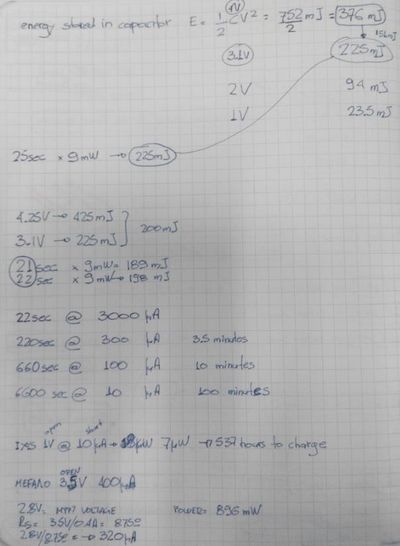 4V
energy stored in capacitor E = 1/2 CV² = 752mJ/2 = 376mJ
151mJ
3.1V 225mJ
2V 94mJ
1V 23.5mJ
25sec × 9mW → 225mJ
4.25V → 425mJ
3.1V → 225mJ } 200mJ
21sec × 9mW = 189mJ
22sec × 9mW → 198mJ
22sec @ 3000 μA
220sec @ 300 μA 3.5 minutes
660sec @ 100 μA 10 minutes
6600sec @ 10 μA 100 minutes
open short
1V @ 10μA → μW 7μW → 537 hours to charge
OPEN
ΜΕΓΑΛΟ 3.5V 400μA
2.8V: MPPT VOLTAGE POWER= 896mW
Rs= 3.5V/0.4A= 8.75Ω
2.8V/8.75Ω = → 320μA